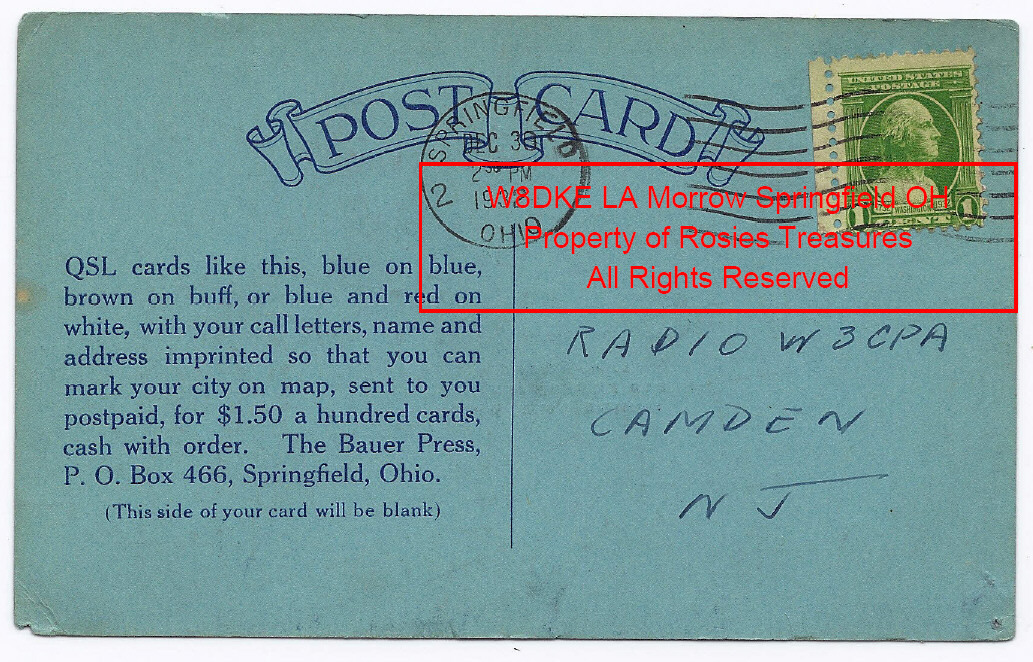 POST CARD
SPRINGFIELD
DEC 30
2 30 PM
2
OHIO
UNITED STATES
POSTAGE
WASHINGTON
1 CENT 1
W8DKE LA Morrow Springfield OH
Property of Rosies Treasures
All Rights Reserved
QSL cards like this, blue on blue,
brown on buff, or blue and red on
white, with your call letters, name and
address imprinted so that you can
mark your city on map, sent to you
postpaid, for $1.50 a hundred cards,
cash with order. The Bauer Press,
P. O. Box 466, Springfield, Ohio.
(This side of your card will be blank)
RADIO W3CPA
CAMDEN
NJ